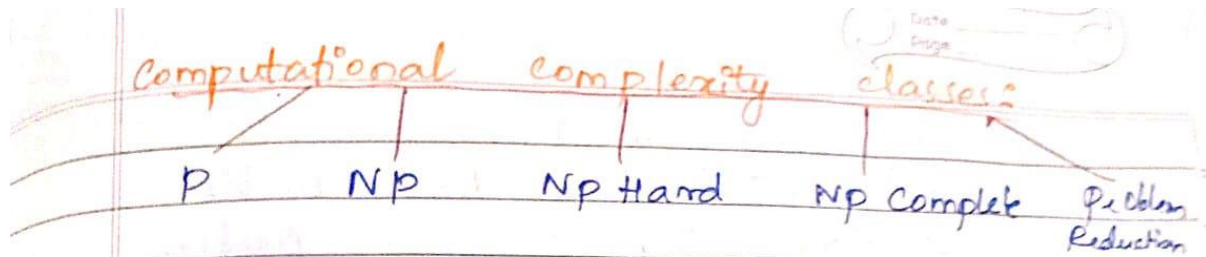 Date
Page
Computational complexity classes:
P NP NP Hard NP Complete Problem
Reduction